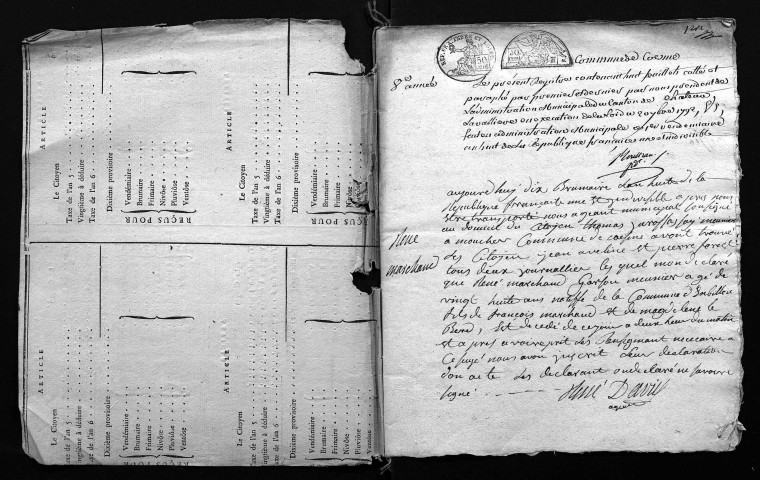 ARTICLE
Le Citoyen
Taxe de l'an 5
Vingtième à déduire
Taxe de l'an 6
Dixième provisoire
REÇUS POUR
Vendémiaire
Brumaire
Frimaire
Nivôse
Pluviôse
Ventôse
ARTICLE
Le Citoyen
Taxe de l'an 5
Vingtième à déduire
Taxe de l'an 6
Dixième provisoire
REÇUS POUR
Vendémiaire
Brumaire
Frimaire
Nivôse
Pluviôse
Ventôse
ARTICLE
Le Citoyen
Taxe de l'an 5
Vingtième à déduire
Taxe de l'an 6
Dixième provisoire
Vendémiaire
Brumaire
Frimaire
Nivôse
Pluviôse
Ventôse
ARTICLE
Le Citoyen
Taxe de l'an 5
Vingtième à déduire
Taxe de l'an 6
Dixième provisoire
Vendémiaire
Brumaire
Frimaire
Nivôse
Pluviôse
Ventôse
Commune de Coesme
8e année
Le présent Registre contenant huit feuillets cotté et
paraphé par premier et dernier par nous president de
L'administration Municipale du Canton de chateau
Lavalliere en execution de la Loi du 20 7bre 1792,
fait en administration Municipale ce 1er vendemiaire
an huit de la Republique francaise une et indivisible
aujourd huy dix Brumaire Lan huite de la
Republique francaise une et indivisible a pres nous
Etre transporté nous agent municipal soussigné
au domicil du Citoyen thomas meunier
a moucher Commune de coesme avont trouvé
Les Citoyen jean aveline et pierre
tous deux journallier les quel mon declaré
que René marchand Garson meunier agé de
vingt huite ans natiffe de la Commune
fils de francois marchand et de magdeleine le
Bené, Est decedé de ce jour a deux heur du matin
et a pres avoire prit des Renseignement nececaire a
Ce sujé nous avon inscrit leur declaration
don acte Les declarant on declaré ne savoire
signé
René
marchand
René David
agent